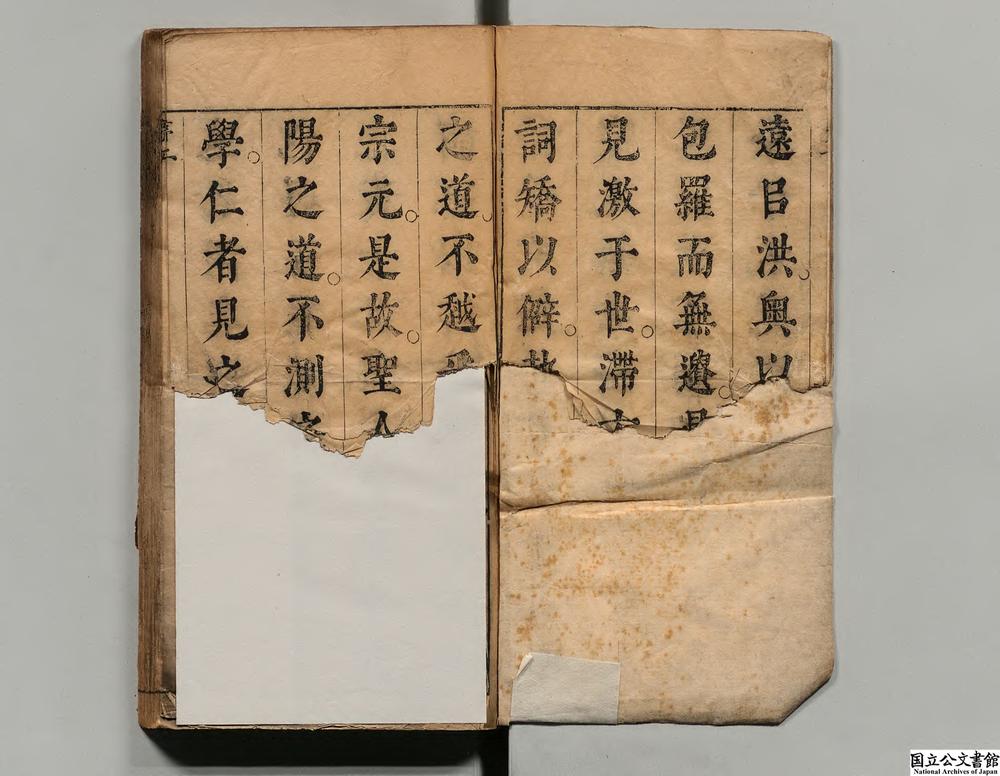 遠㠯洪奥以
包羅而無邉
見激于世滯
詞矯以僻
之道不越
宗元是故聖人
陽之道不測
學仁者見之
国立公文書館
National Archives of Japan